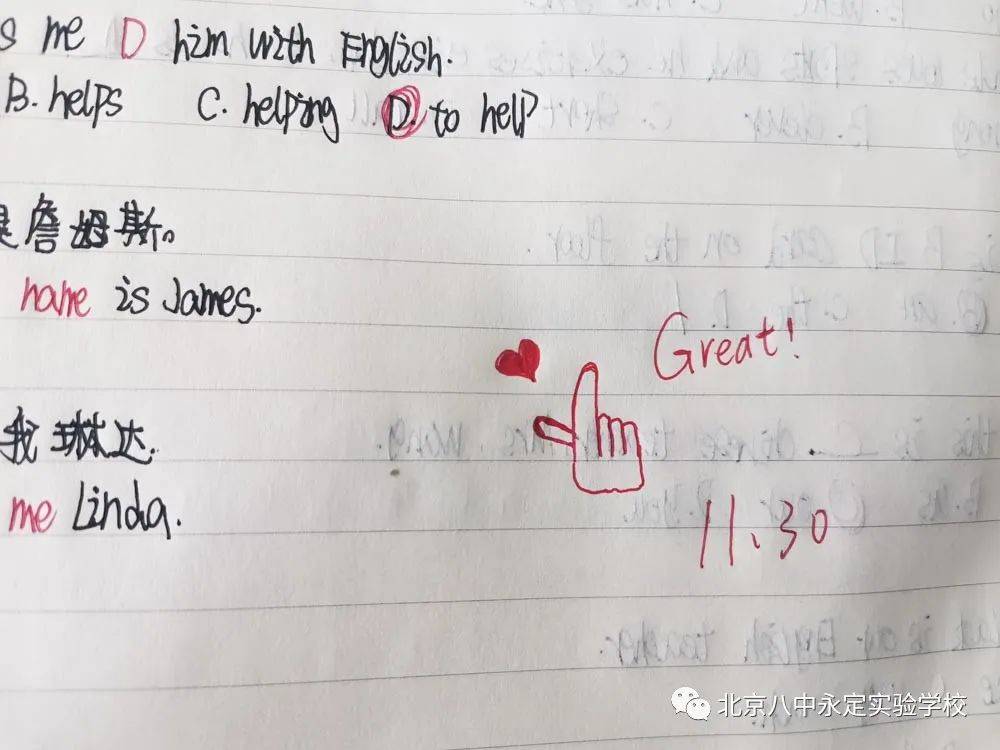 s me D him with English.
B. helps C. helping D. to help
是詹姆斯。
name is James.
Great!
我琳达.
me Linda.
11.30
北京八中永定实验学校